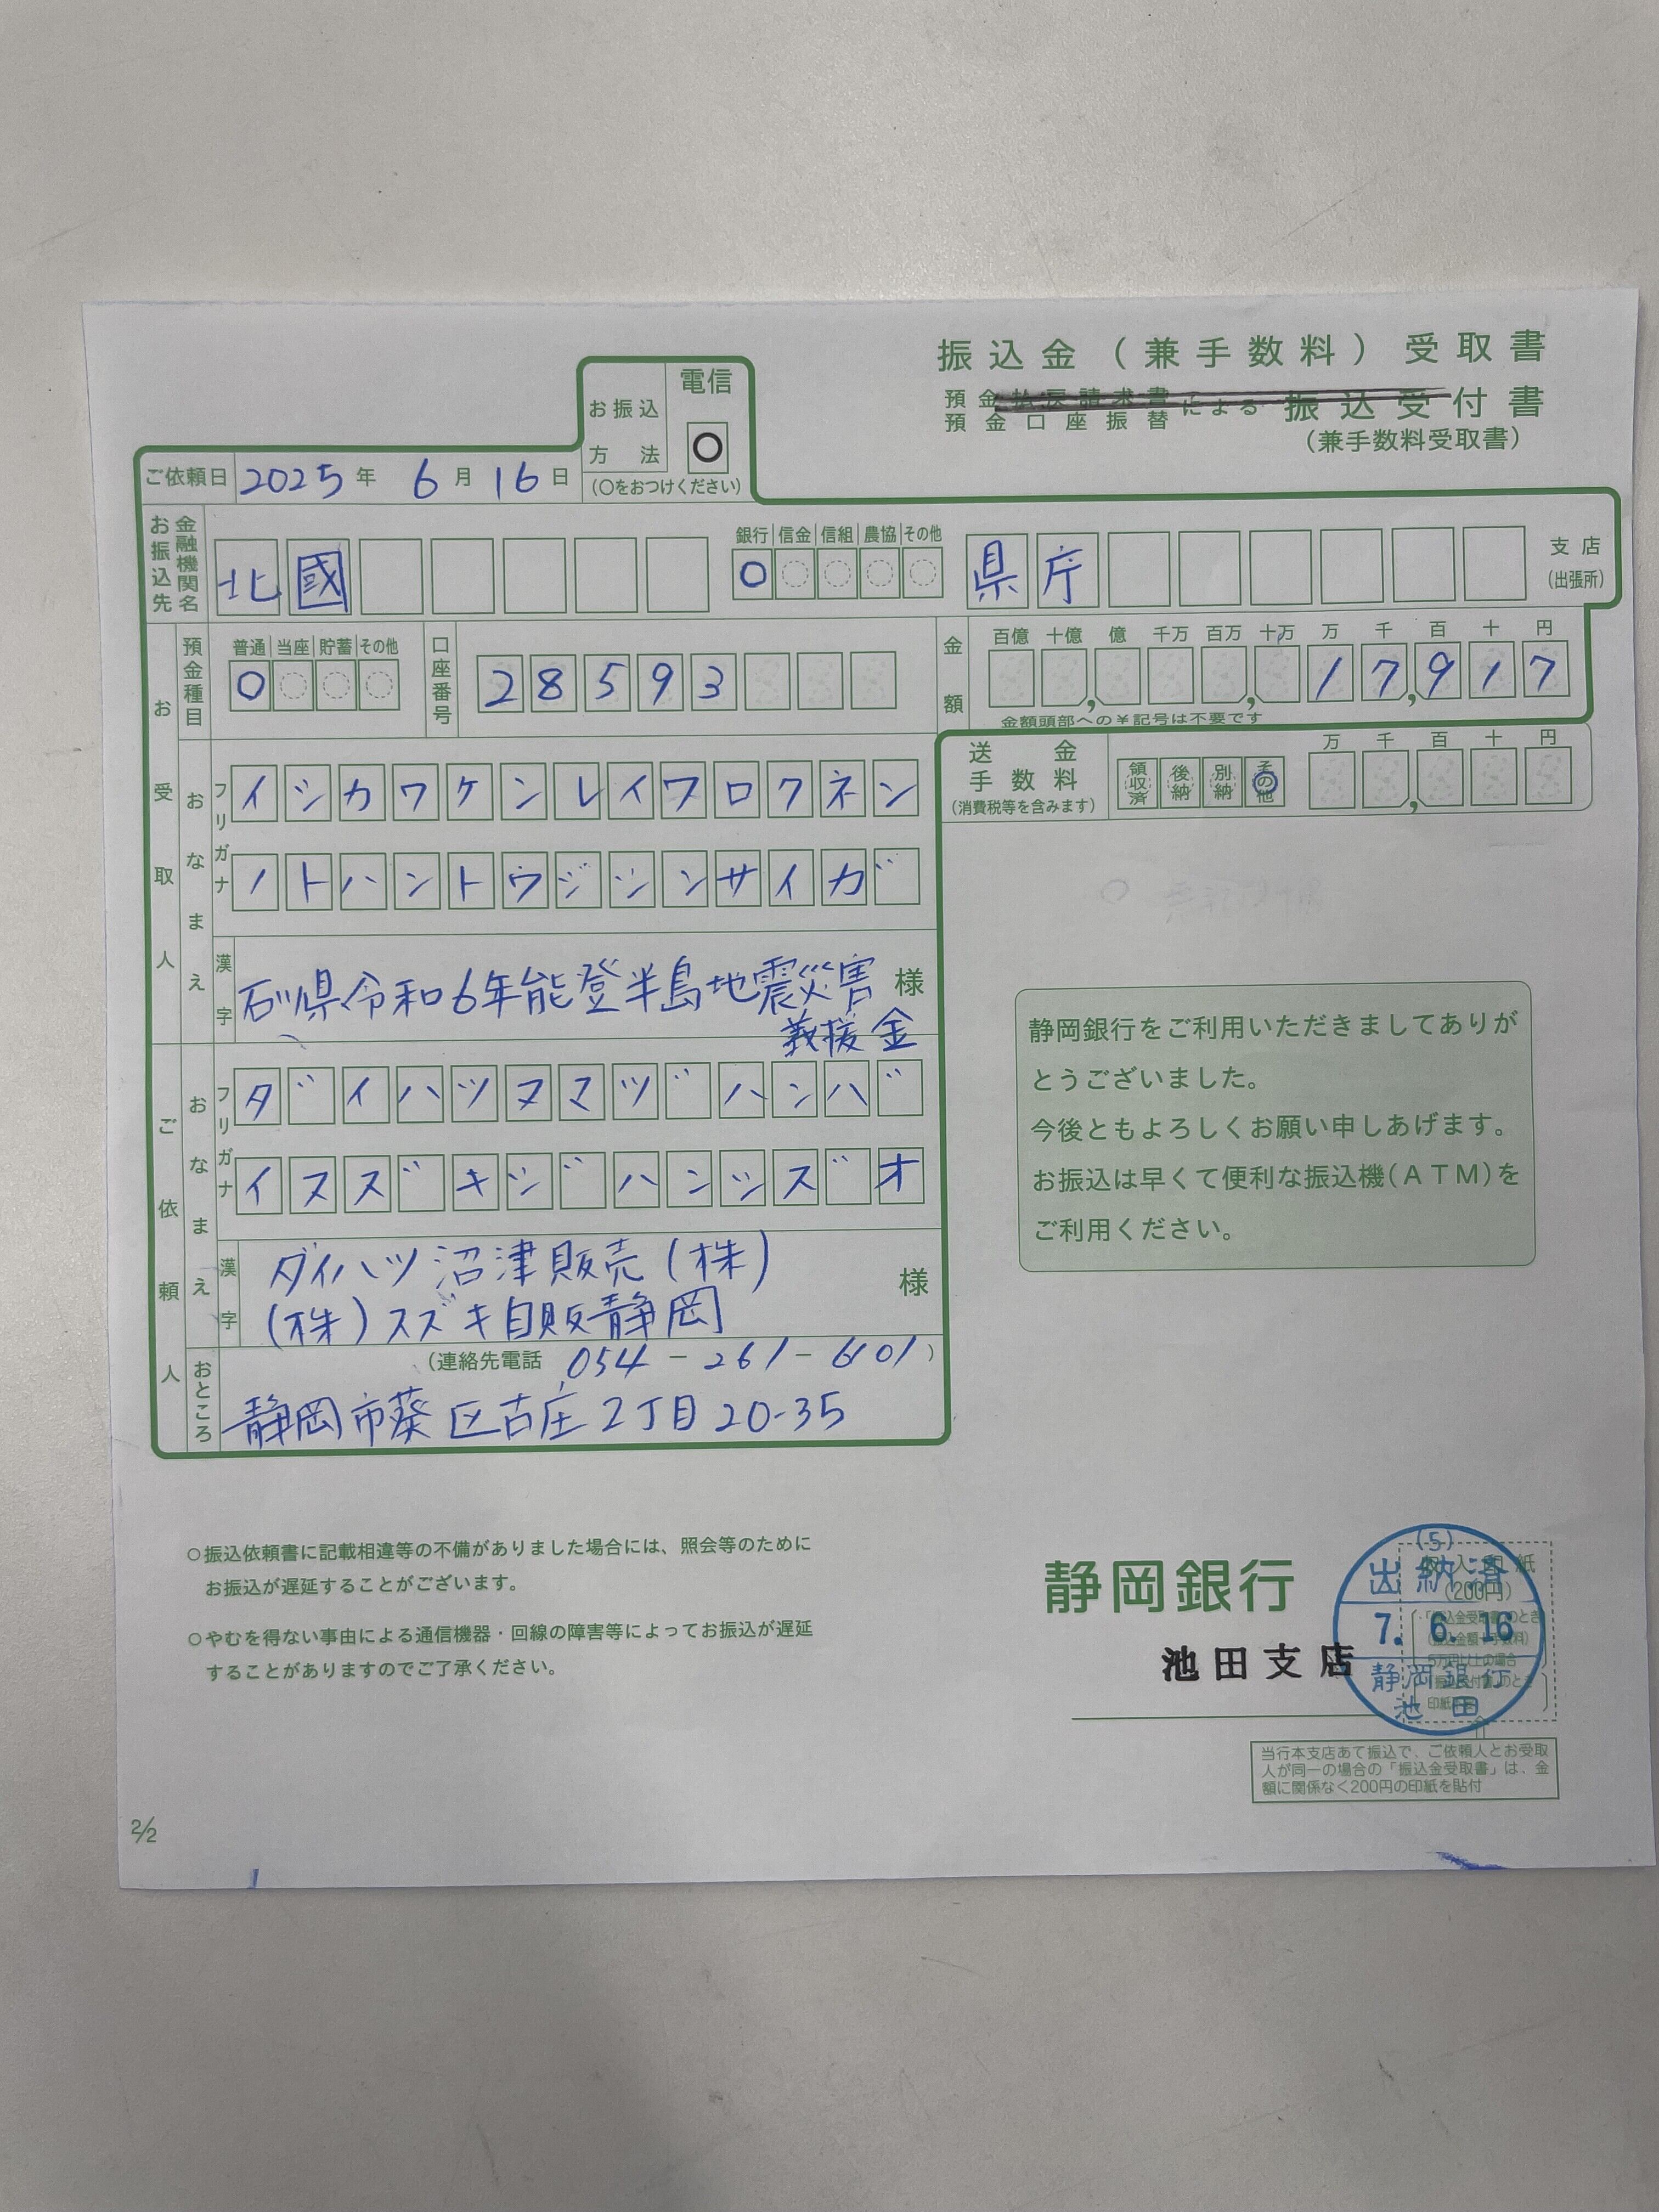 振込金（兼手数料）受取書
預金払戻請求書
預金口座振替
による 振込受付書
（兼手数料受取書）
お振込方法 電信 ○
（○をおつけください）
ご依頼日 2025年 6月 16日
お振込先 金融機関名 北國 銀行 信金 信組 農協 その他 ○ 県庁 支店（出張所）
預金種目 普通 当座 貯蓄 その他 ○ 口座番号 28593
金額 百億 十億 億 千万 百万 十万 万 千 百 十 円
17,917
金額頭部への￥記号は不要です
送金手数料（消費税等を含みます） 領収済 後納 別納 その他 万 千 百 十 円
お受取人 おなまえ フリガナ
イシカワケンレイワロクネン
ノトハントウジシンサイガ゛
漢字 石川県令和6年能登半島地震災害 様
義援金
ご依頼人 おなまえ フリガナ
タ゛イハツヌマツ゛ハンハ゛
イヌス゛キシ゛ハンシズ゛オ
漢字 ダイハツ沼津販売(株)
(株)スズキ自販静岡 様
（連絡先電話 054-261-6101）
おところ 静岡市葵区古庄2丁目20-35
静岡銀行をご利用いただきましてありが
とうございました。
今後ともよろしくお願い申しあげます。
お振込は早くて便利な振込機(ＡＴＭ)を
ご利用ください。
○振込依頼書に記載相違等の不備がありました場合には、照会等のために
お振込が遅延することがございます。
○やむを得ない事由による通信機器・回線の障害等によってお振込が遅延
することがありますのでご了承ください。
静岡銀行
池田支店
(5)
出納済
7. 6. 16
静岡銀行
池田
収入印紙
(200円)
当行本支店あて振込で、ご依頼人とお受取
人が同一の場合の「振込金受取書」は、金
額に関係なく200円の印紙を貼付
2/2